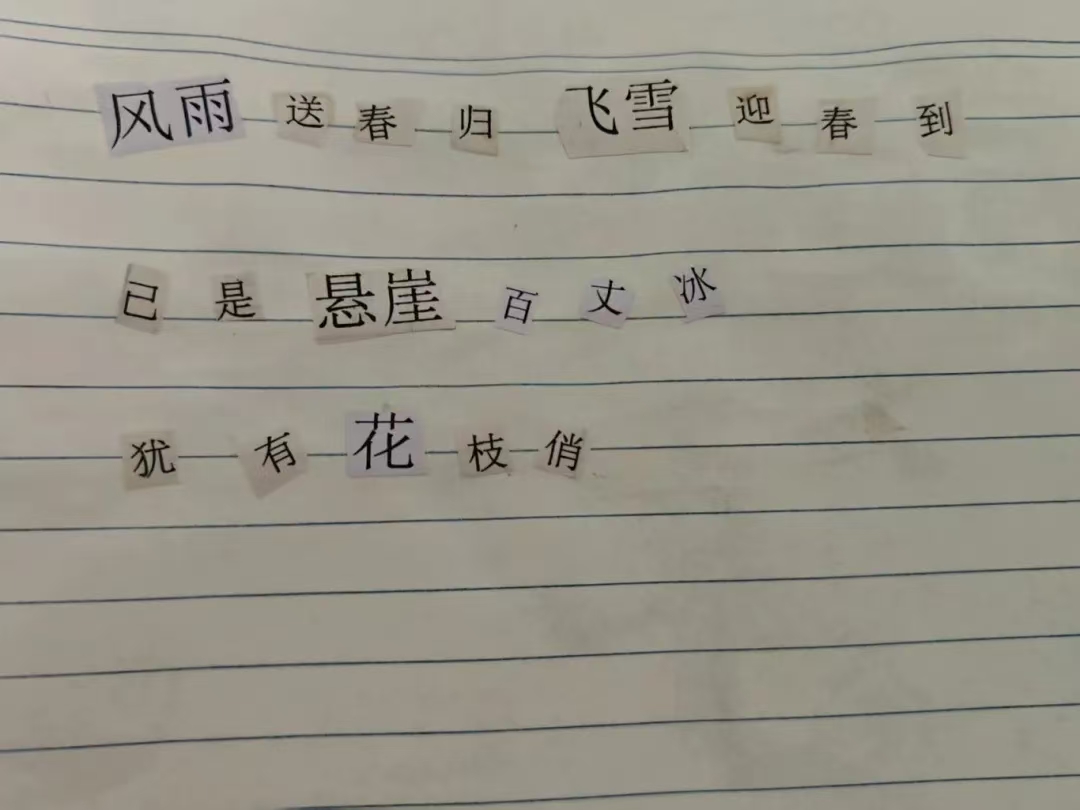 风雨送春归 飞雪迎春到
已是悬崖百丈冰
犹有花枝俏